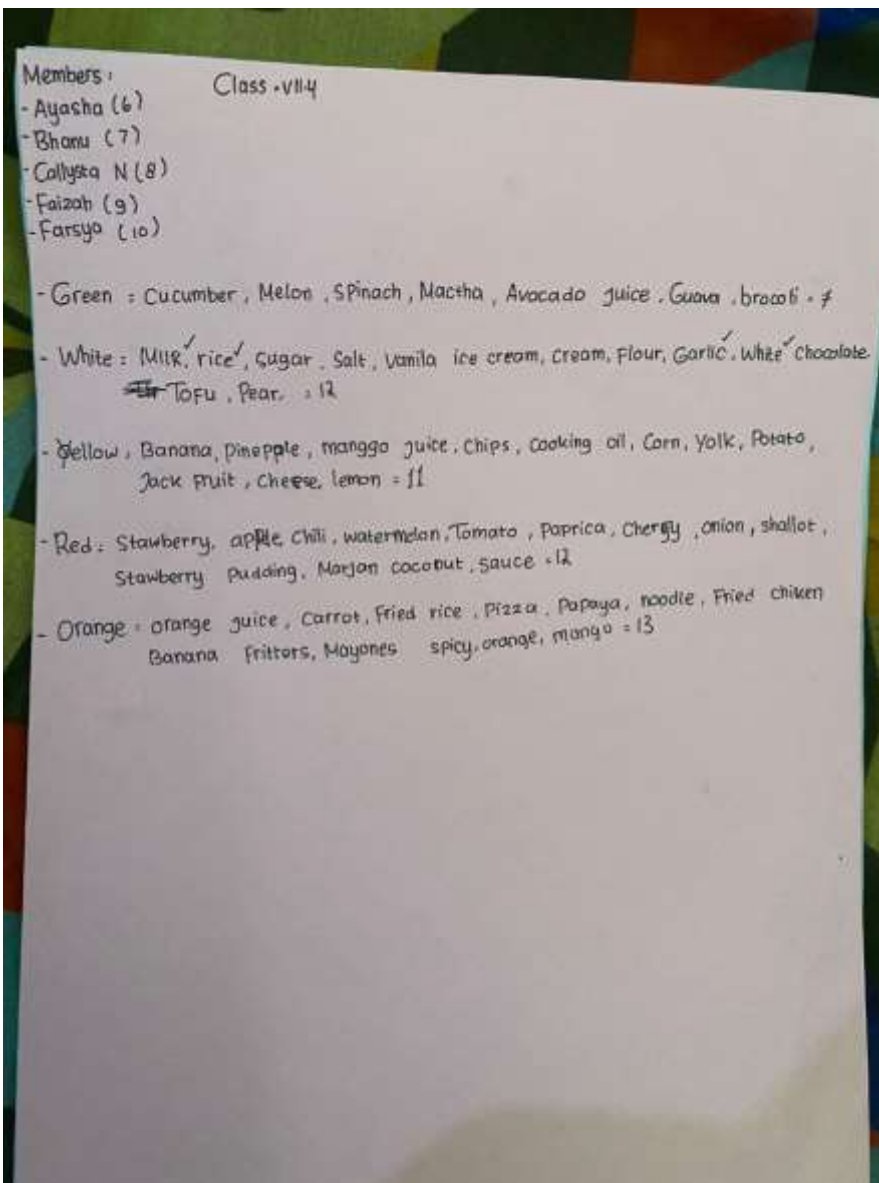 Members : Class . VII.4
- Ayasha (6)
- Bhanu (7)
- Callysta N (8)
- Faizah (9)
- Farsya (10)
- Green : Cucumber, Melon, Spinach, Mactha, Avocado juice, Guava, brocoli . 7
- White : Milk, rice, Sugar, Salt, Vanila ice cream, Cream, Flour, Garlic, White Chocolate
Tofu, Pear. : 12
- Yellow, Banana, pinepple, manggo juice, Chips, Cooking oil, Corn, Yolk, Potato,
Jack Fruit, Cheese, lemon = 11
- Red : Stawberry, apple, Chili, watermelon, Tomato, Paprica, Cherry, onion, shallot,
Stawberry Pudding, Marjan cocobut, sauce = 12
- Orange : orange juice, Carrot, Fried rice, Pizza, Papaya, noodle, Fried chiken
Banana Frittors, Mayones spicy, orange, mango = 13